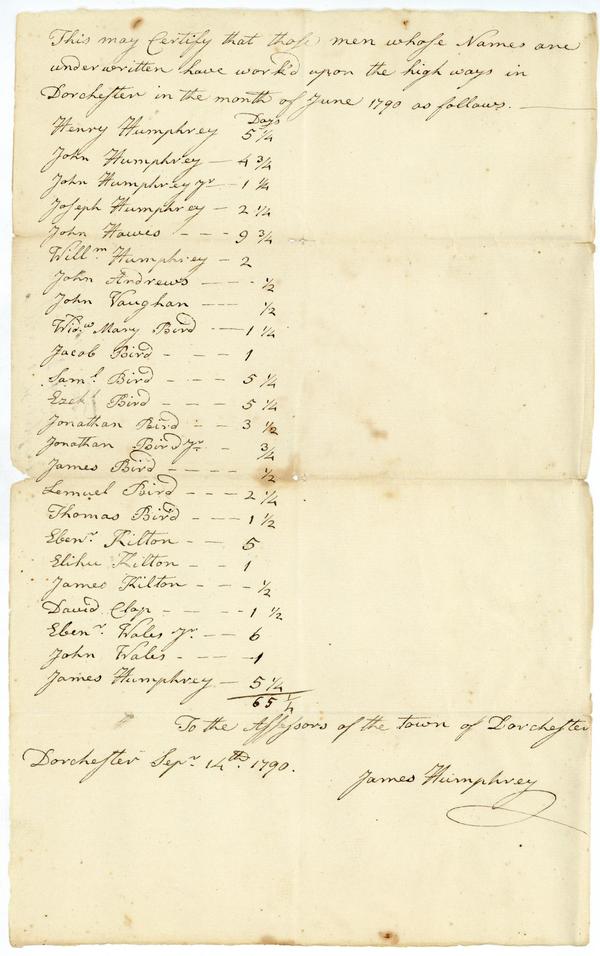 This may Certify that those men whose Names are
underwritten have work'd upon the high ways in
Dorchester in the month of June 1790 as follows. —
Days
Henry Humphrey 5 1/4
John Humphrey — 4 3/4
John Humphrey Jr — 1 1/4
Joseph Humphrey — 2 1/4
John Hawes - - - 9 3/4
Willm Humphrey — 2
John Andrews - - - 1/2
John Vaughan - - - 1/2
Widw Mary Bird — 1 1/4
Jacob Bird - — — 1
Saml Bird - — — 5 1/4
Ezekl Bird - — — 5 1/4
Jonathan Bird - — 3 1/2
Jonathan Bird Jr - 3/4
James Bird - - - - 1/2
Lemuel Bird - - - 2 1/4
Thomas Bird - - - 1 1/2
Ebenr Kilton - — 5
Elihu Kilton - — 1
James Kilton - - - 1/2
David Clap - - - - 1 1/2
Ebenr Wales Jr. — — 6
John Wales - - — 1
James Humphrey — 5 1/4
65 1/4
To the Assessors of the town of Dorchester
Dorchester Sepr 14th. 1790.
James Humphrey